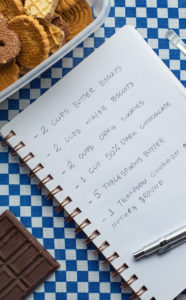 - 2 CUPS BUTTER BISCUITS
- 2 CUPS WAFER BISCUITS
- 2 CUPS OREO COOKIES
- 1 CUP 50% DARK CHOCOLATE
- 5 TABLESPOONS BUTTER
- 1 TEASPOON CINNAMON &
NUTMEG GROUND